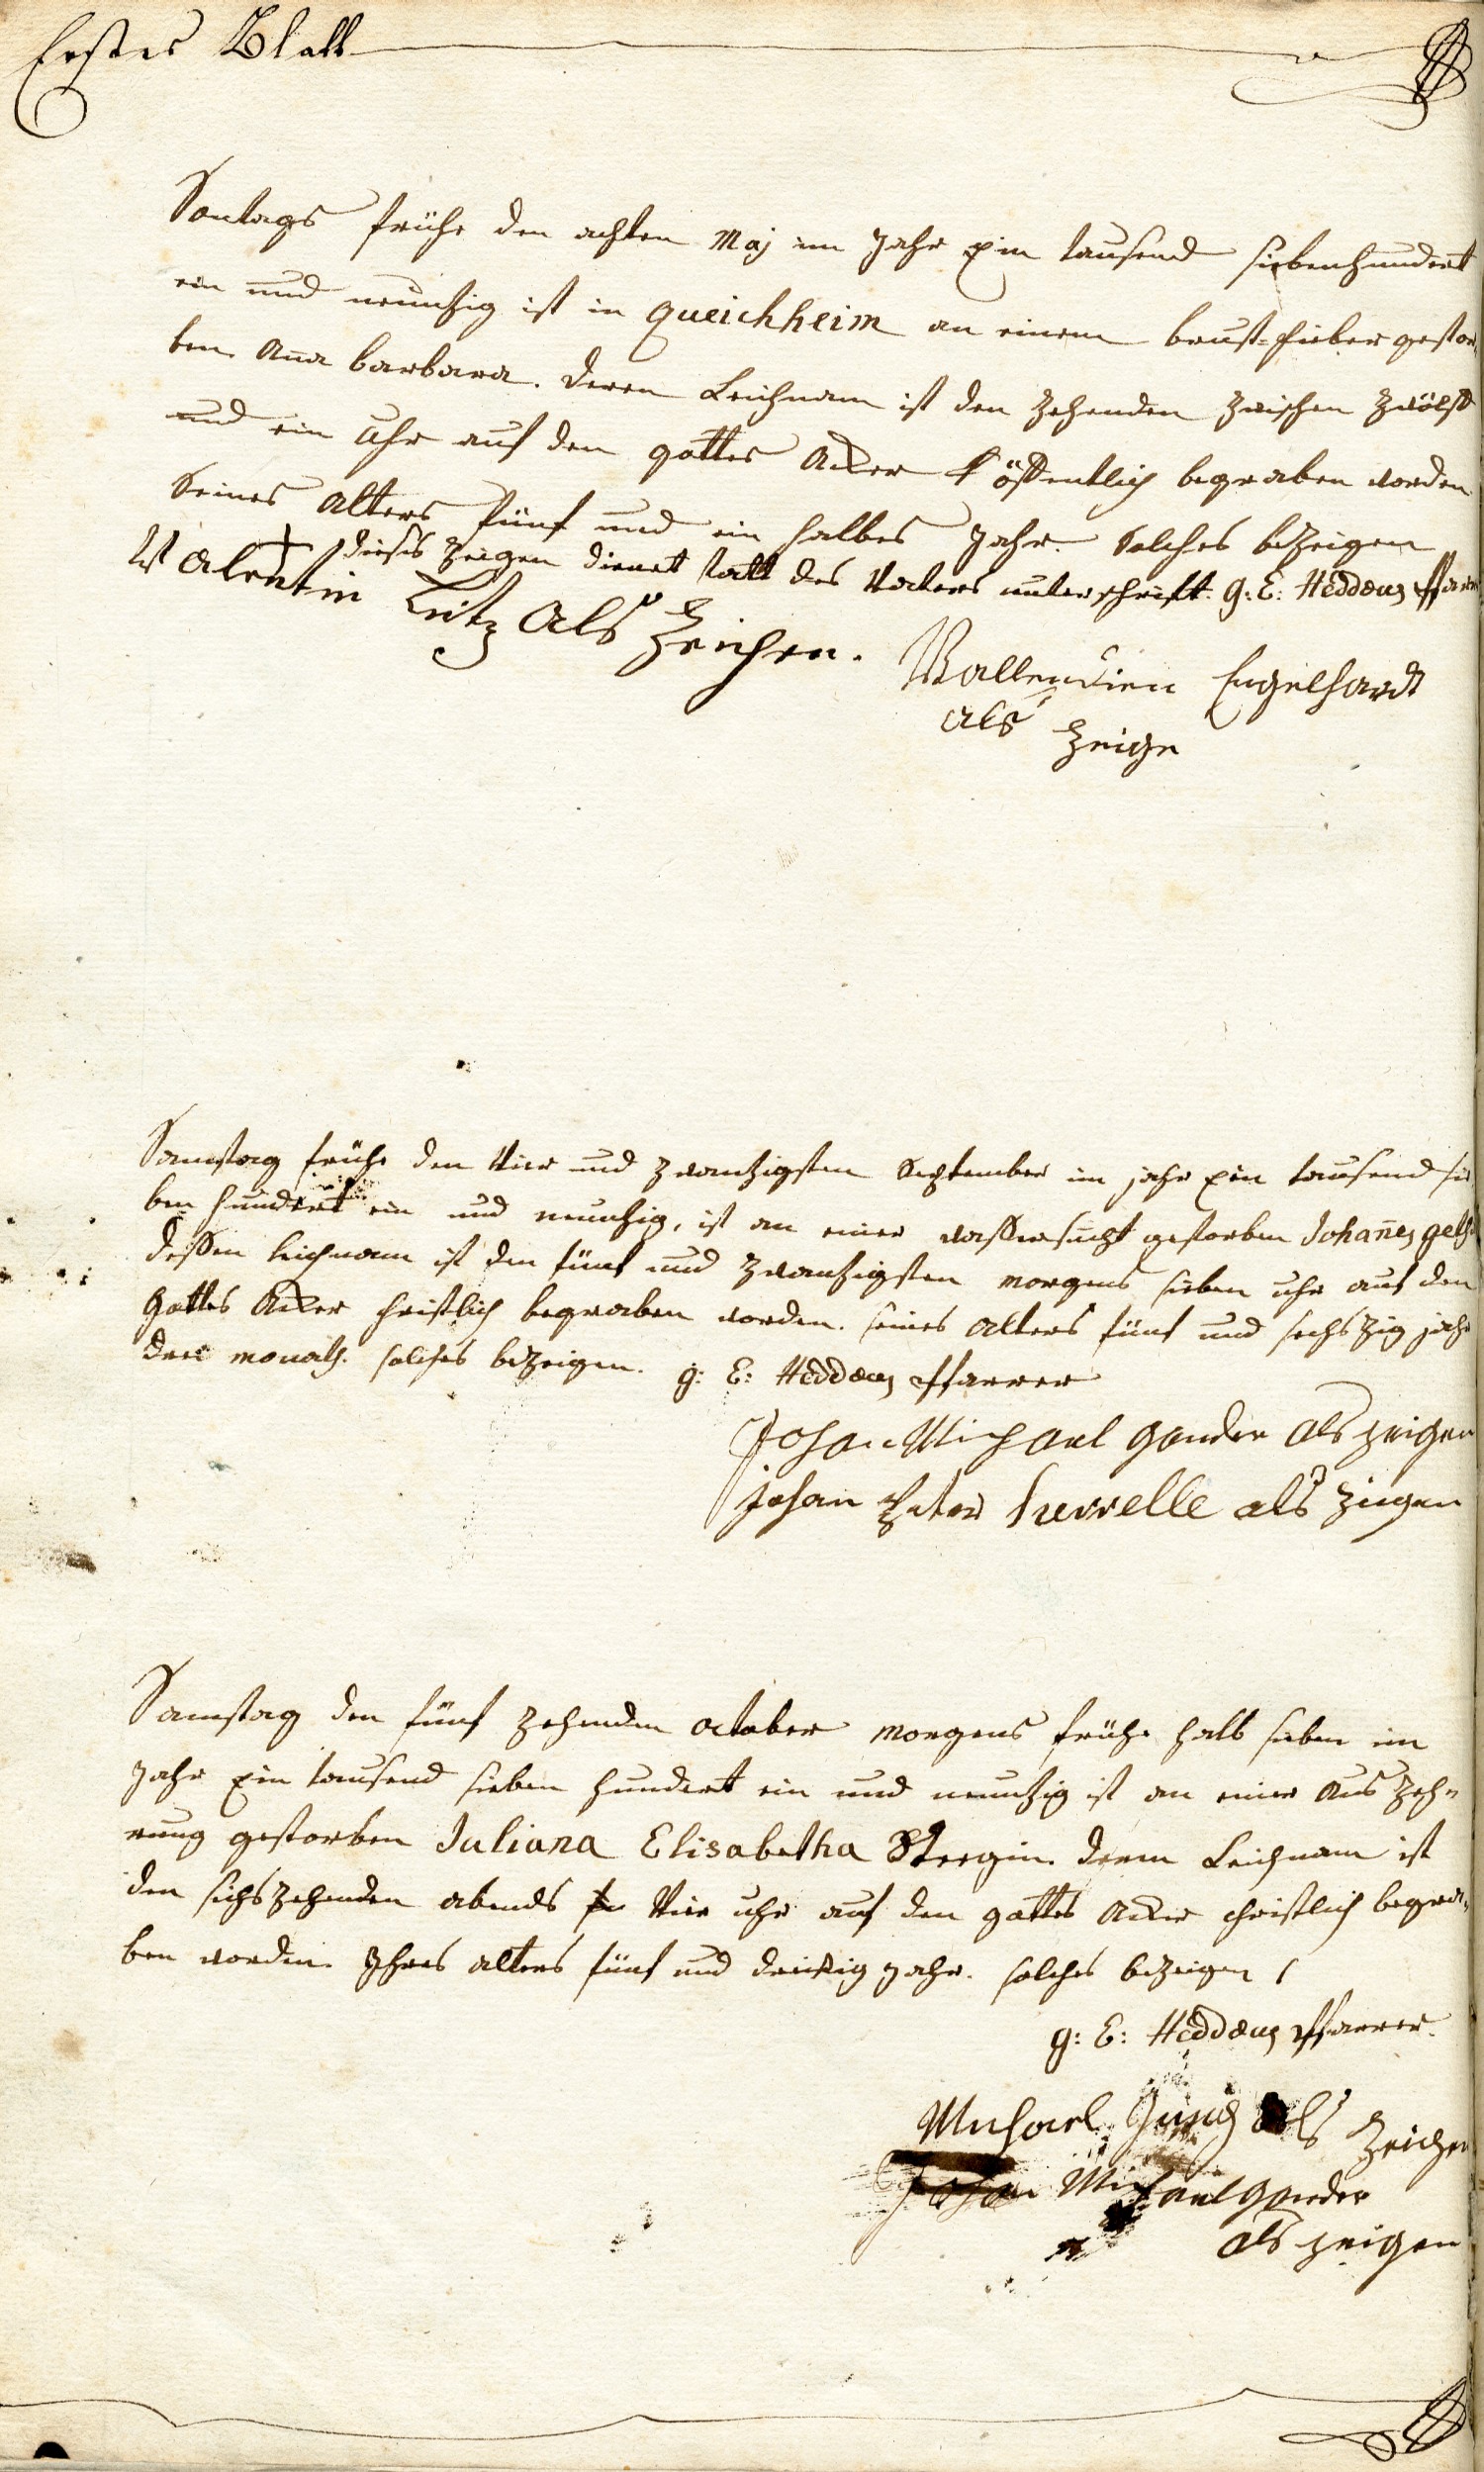 Erstes Blatt
Sontags frühe den achten Maj im Jahr ein tausend siebenhundert
ein und neunzig ist in Queichheim an einem brust-fieber gestor
ben Aña barbara. deren Leichnam ist den zehenden zwischen zwölff
und ein Uhr auf den gottes Acker öffentlich begraben worden
Seines Alters fünf und ein halbes Jahr. Solches bezeigen
+ dieses zeigen dienet statt des Vaters unterschrift. G: E: Heddæus Pfarrer
Valentin als Zeichen.
Wallendien Engelhardt
als Zeige
Samstag frühe den vier und zwanzigsten September im jahr ein tausend sie
ben hundert ein und neunzig, ist an einer wassersucht gestorben Johañes
dessen leichnam ist den fünf und zwanzigsten morgens sieben uhr auf den
Gottes Acker christlich begraben worden. seines alters fünf und sechszig jahr
drei monath. solches bezeigen. G: E: Heddæus Pfarrer
Johan Michael Gander als zeigen
Johan Peter als zeigen
Samstag den fünf zehenden october morgens frühe halb sieben im
Jahr ein tausend sieben hundert ein und neunzig ist an einer Auszeh=
rung gestorben Juliana Elisabetha deren Leichnam ist
den sechszehenden abends vier uhr auf den gottes Acker christlich begra=
ben worden. Ihres alters fünf und dreisig Jahr. solches bezeigen
G: E: Heddæus Pfarrer.
Michael als Zeichen
Johan Michael Gander
als zeigen